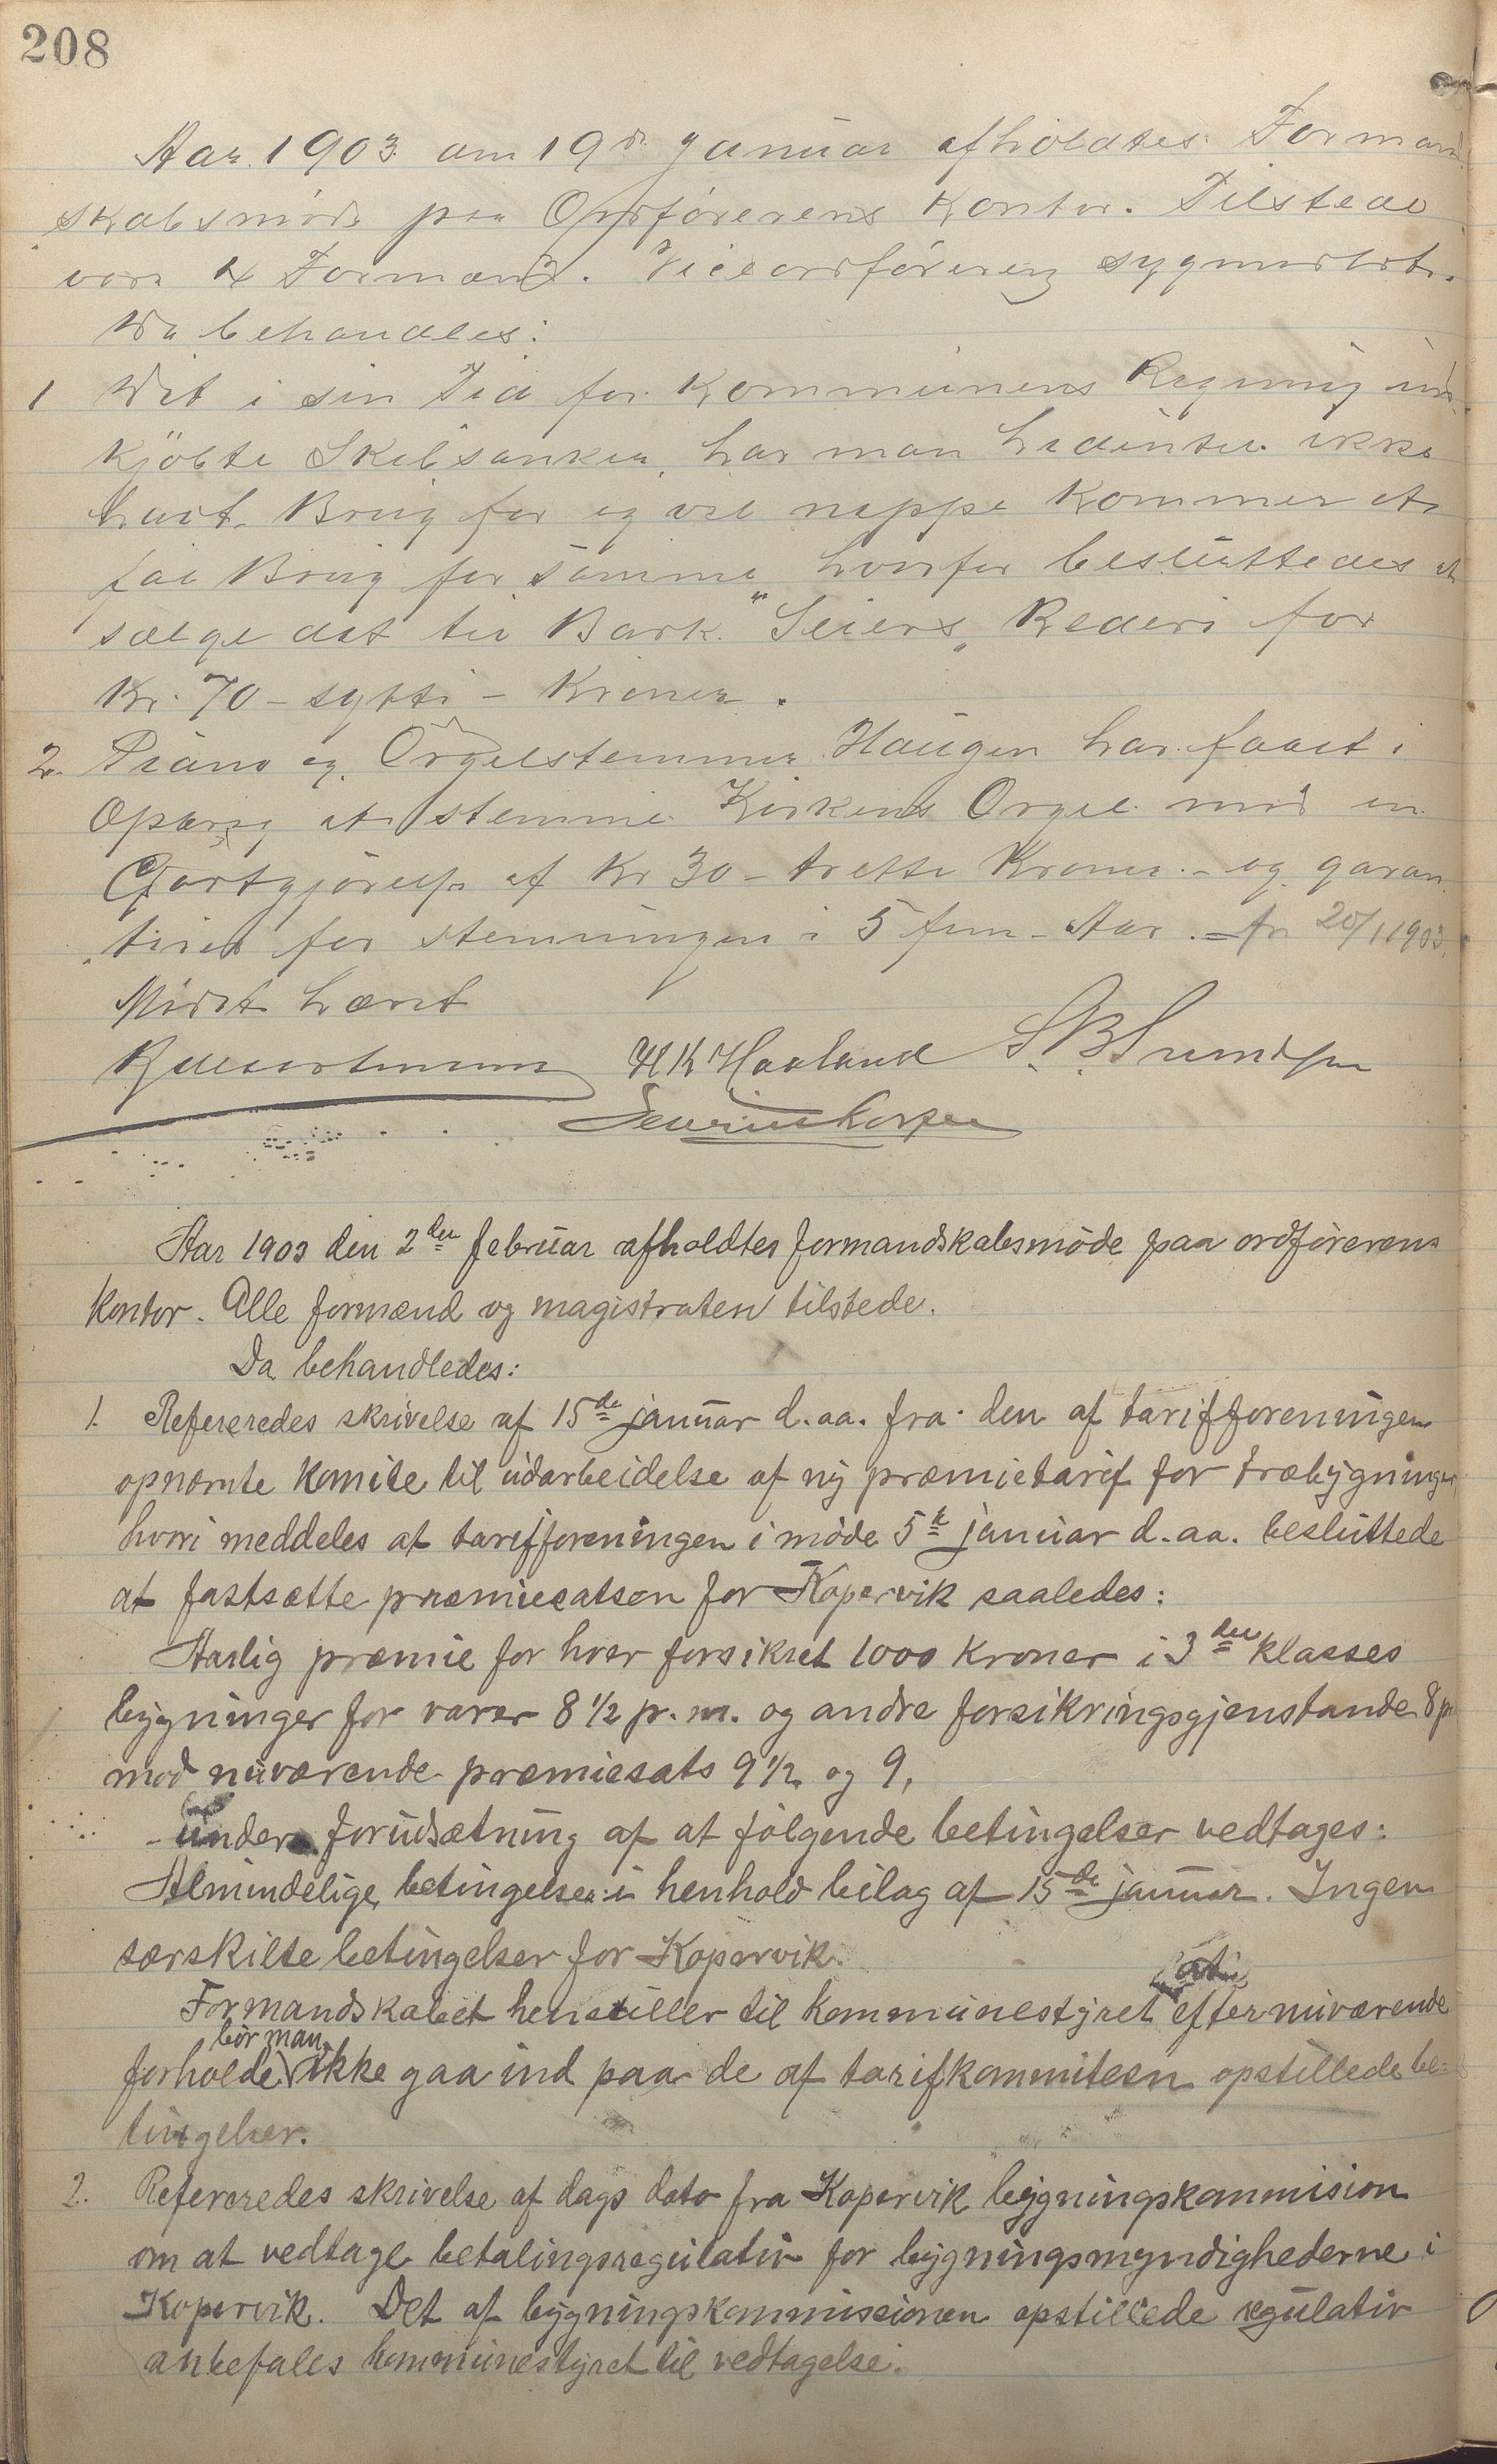 208
Aar 1903 den 19de Januar afholdtes Formand
skabsmøde paa Ordførerens Kontor. Tilstede
var 4 Formænd. Viceordføreren sygmeldt.
Da behandles:
1 Det i sin Tid for Kommunens Regning ind
kjøbte Skibsanker, har man hidintil ikke
havt Brug for og vil neppe kommer at
faa Brug for samme, hvorfor besluttedes at
sælge det til Bark. "Seiers" Rederi for
Kr. 70 – sytti – Kroner.
2. Piano og Orgelstemmer Haugen har faaet i
Opdrag at stemme Kirkens Orgel mod en
Godtgjørelse af Kr 30 – tretti Kroner. – og garan
tirer for stemningen i 5 fem Aar. – fra 20/1 1903.
Mødet hævet
H K Haaland
Aar 1903 den 2den februar afholdtes formandskabsmøde paa ordførerens
kontor. Alle formænd og magistraten tilstede.
Da behandledes:
1. Refereredes skrivelse af 15de januar d. aa. fra den af tarifforeningen
opnævnte komite til udarbeidelse af ny præmietarif for træbygninger,
hvori meddeles at tarifforeningen i møde 5te januar d. aa. besluttede
at fastsætte præmiesatsen for Kopervik saaledes:
Aarlig præmie for hver forsikret 1000 kroner i 3die klasses
bygninger for varer 8 1/2 p. m. og andre forsikringsgjenstande 8 p.
mod nuværende præmiesats 9 1/2 og 9,
- under forudsætning af at følgende betingelser vedtages:
Almindelige betingelser i henhold bilag af 15de januar. Ingen
særskilte betingelser for Kopervik.
Formandskabet henstiller til kommunestyret at efter nuværende
forholde bør man ikke gaa ind paa de af tarifkommiteen opstillede be=
tingelser.
2. Refereredes skrivelse af dags dato fra Kopervik bygningskommision
om at vedtage betalingsregulativ for bygningsmyndighederne i
Kopervik. Det af bygningskommissionen opstillede regulativ
anbefales kommunestyret til vedtagelse.